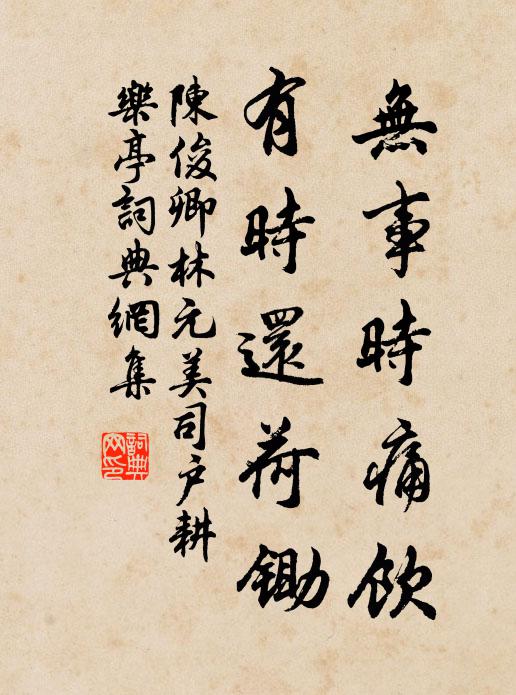 無事時痛飲
有時還荷鋤
陳俊卿林元美司户耕
樂亭詞典網集
詞典
网印